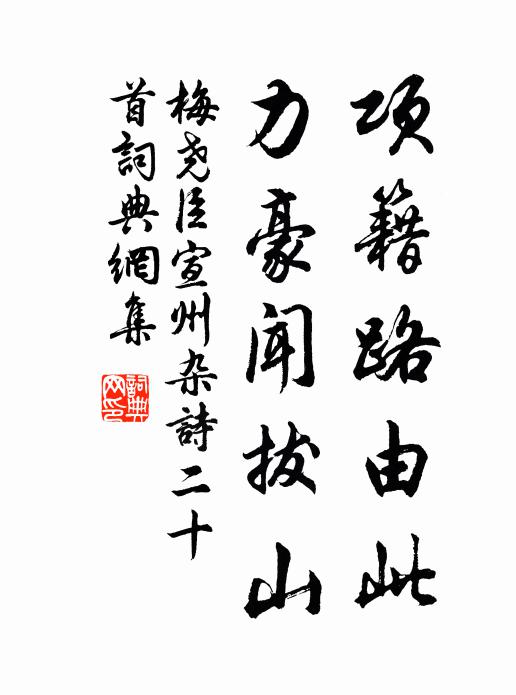 项籍路由此
力豪闻拔山
梅尧臣宣州杂詩二十
首詞典網集
詞典网印